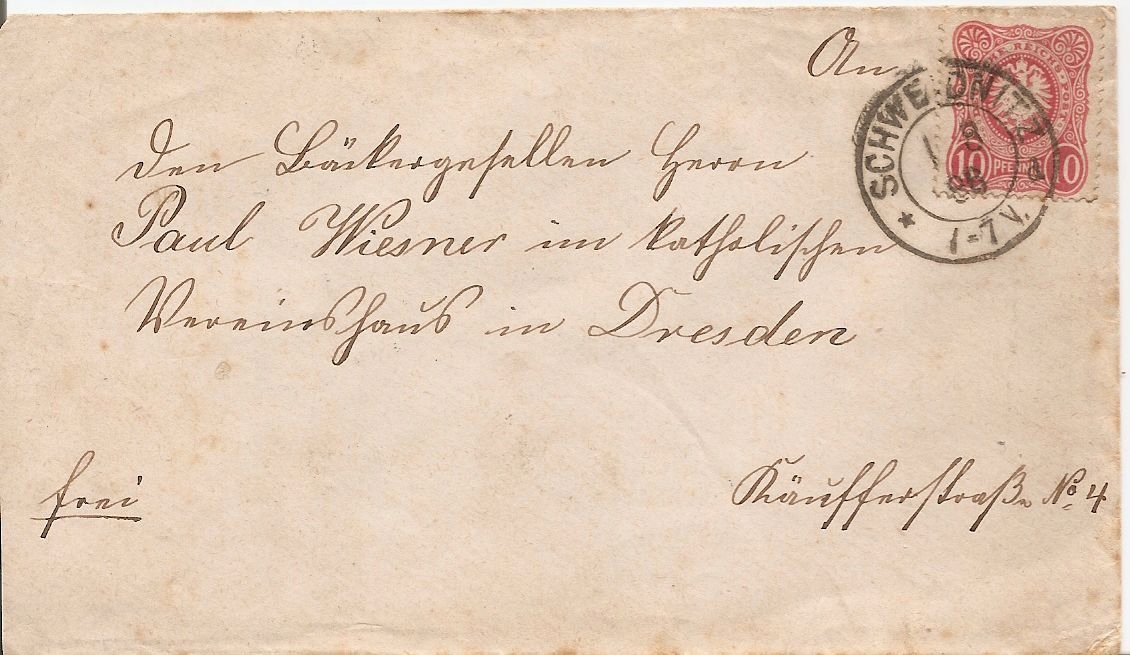 An
den Bäckergesellen Herrn
Paul Wiesner im katholischen
Vereinshaus in Dresden
frei
Käufferstraße No. 4
SCHWEIDNITZ
8
88
1-7 V.
REICHS
10 PFENNIG